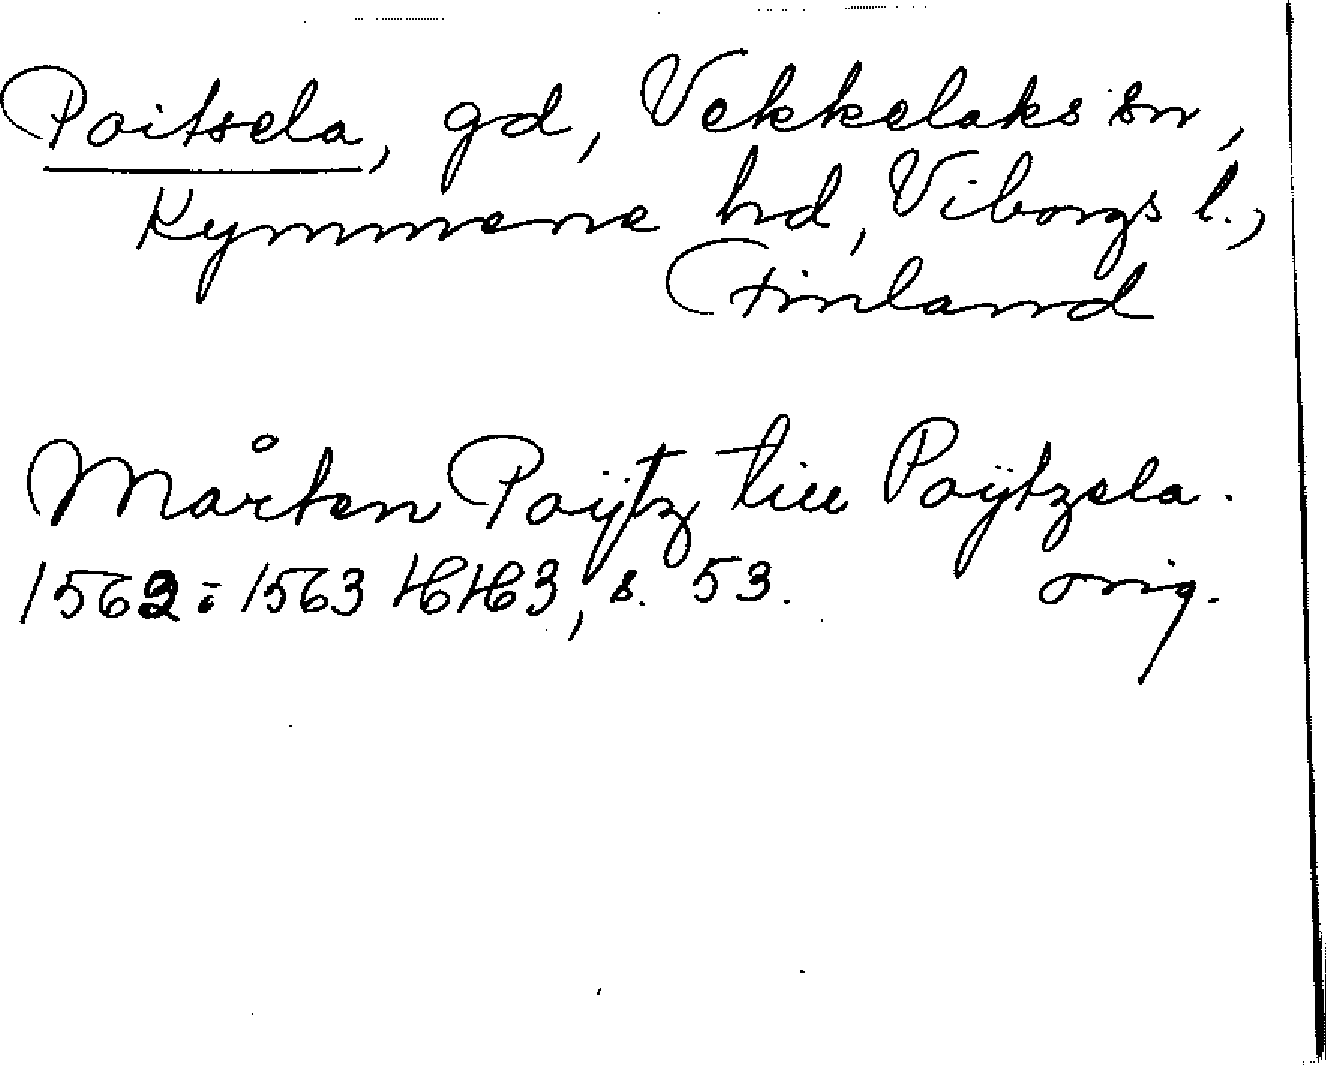 Poitsela, gd, Vekkelaks sn,
Kymmene hd, Viborgs l.,
Finland
Mårten Poÿtz till Poÿtzela.
1562: 1563 HH3, s. 53. orig.